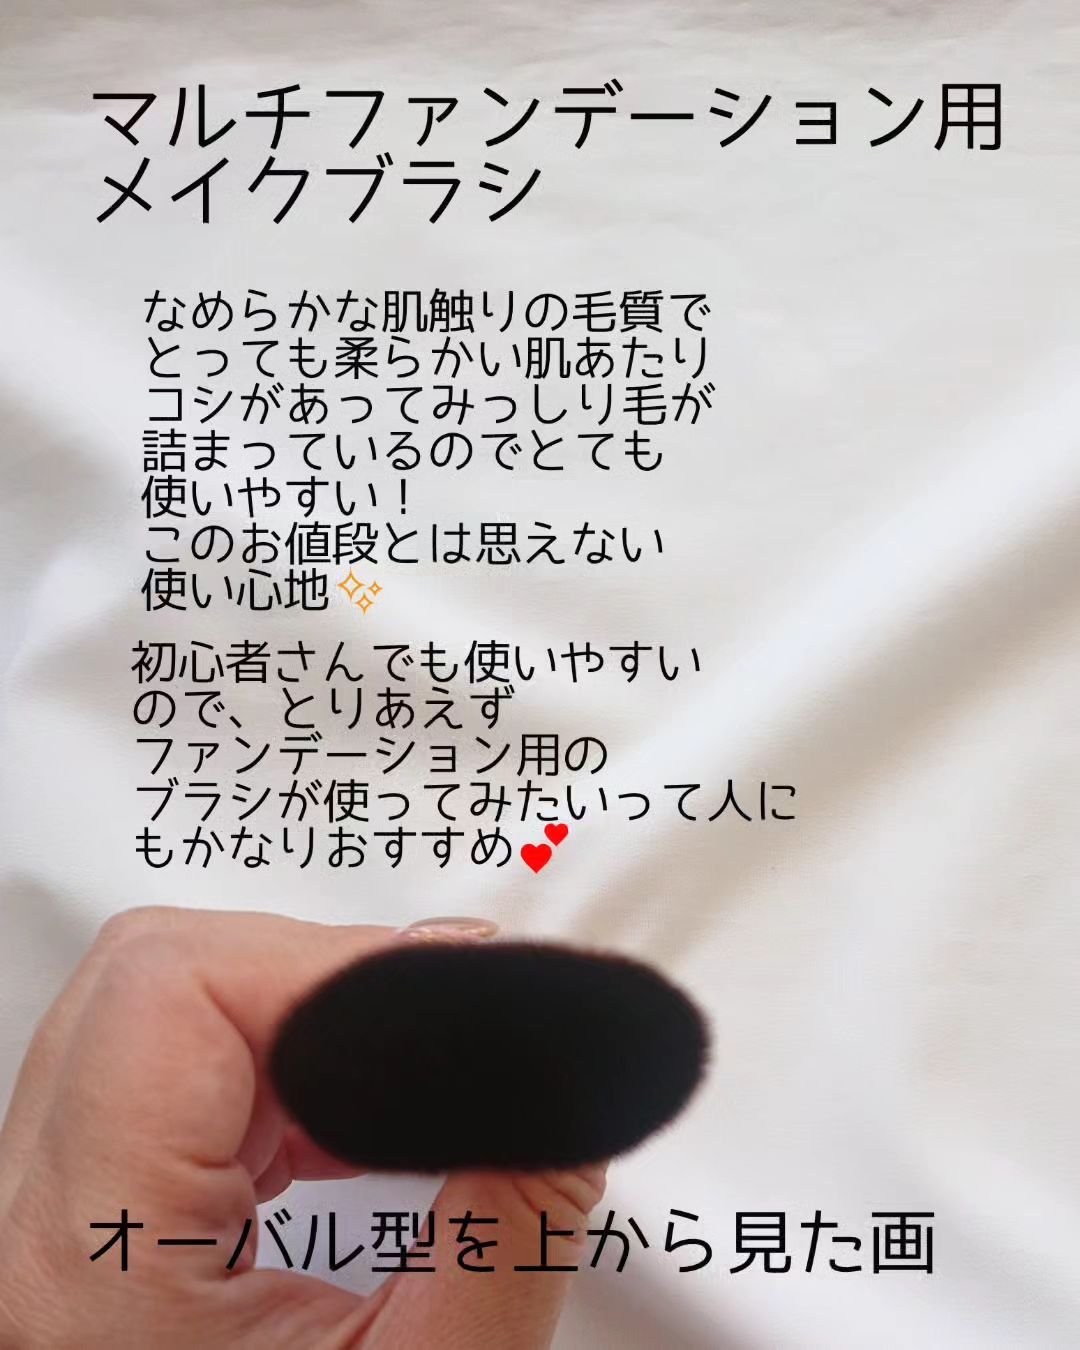 マルチファンデーション用
メイクブラシ
なめらかな肌触りの毛質で
とっても柔らかい肌あたり
コシがあってみっしり毛が
詰まっているのでとても
使いやすい！
このお値段とは思えない
使い心地✨
初心者さんでも使いやすい
ので、とりあえず
ファンデーション用の
ブラシが使ってみたいって人に
もかなりおすすめ💕
オーバル型を上から見た画